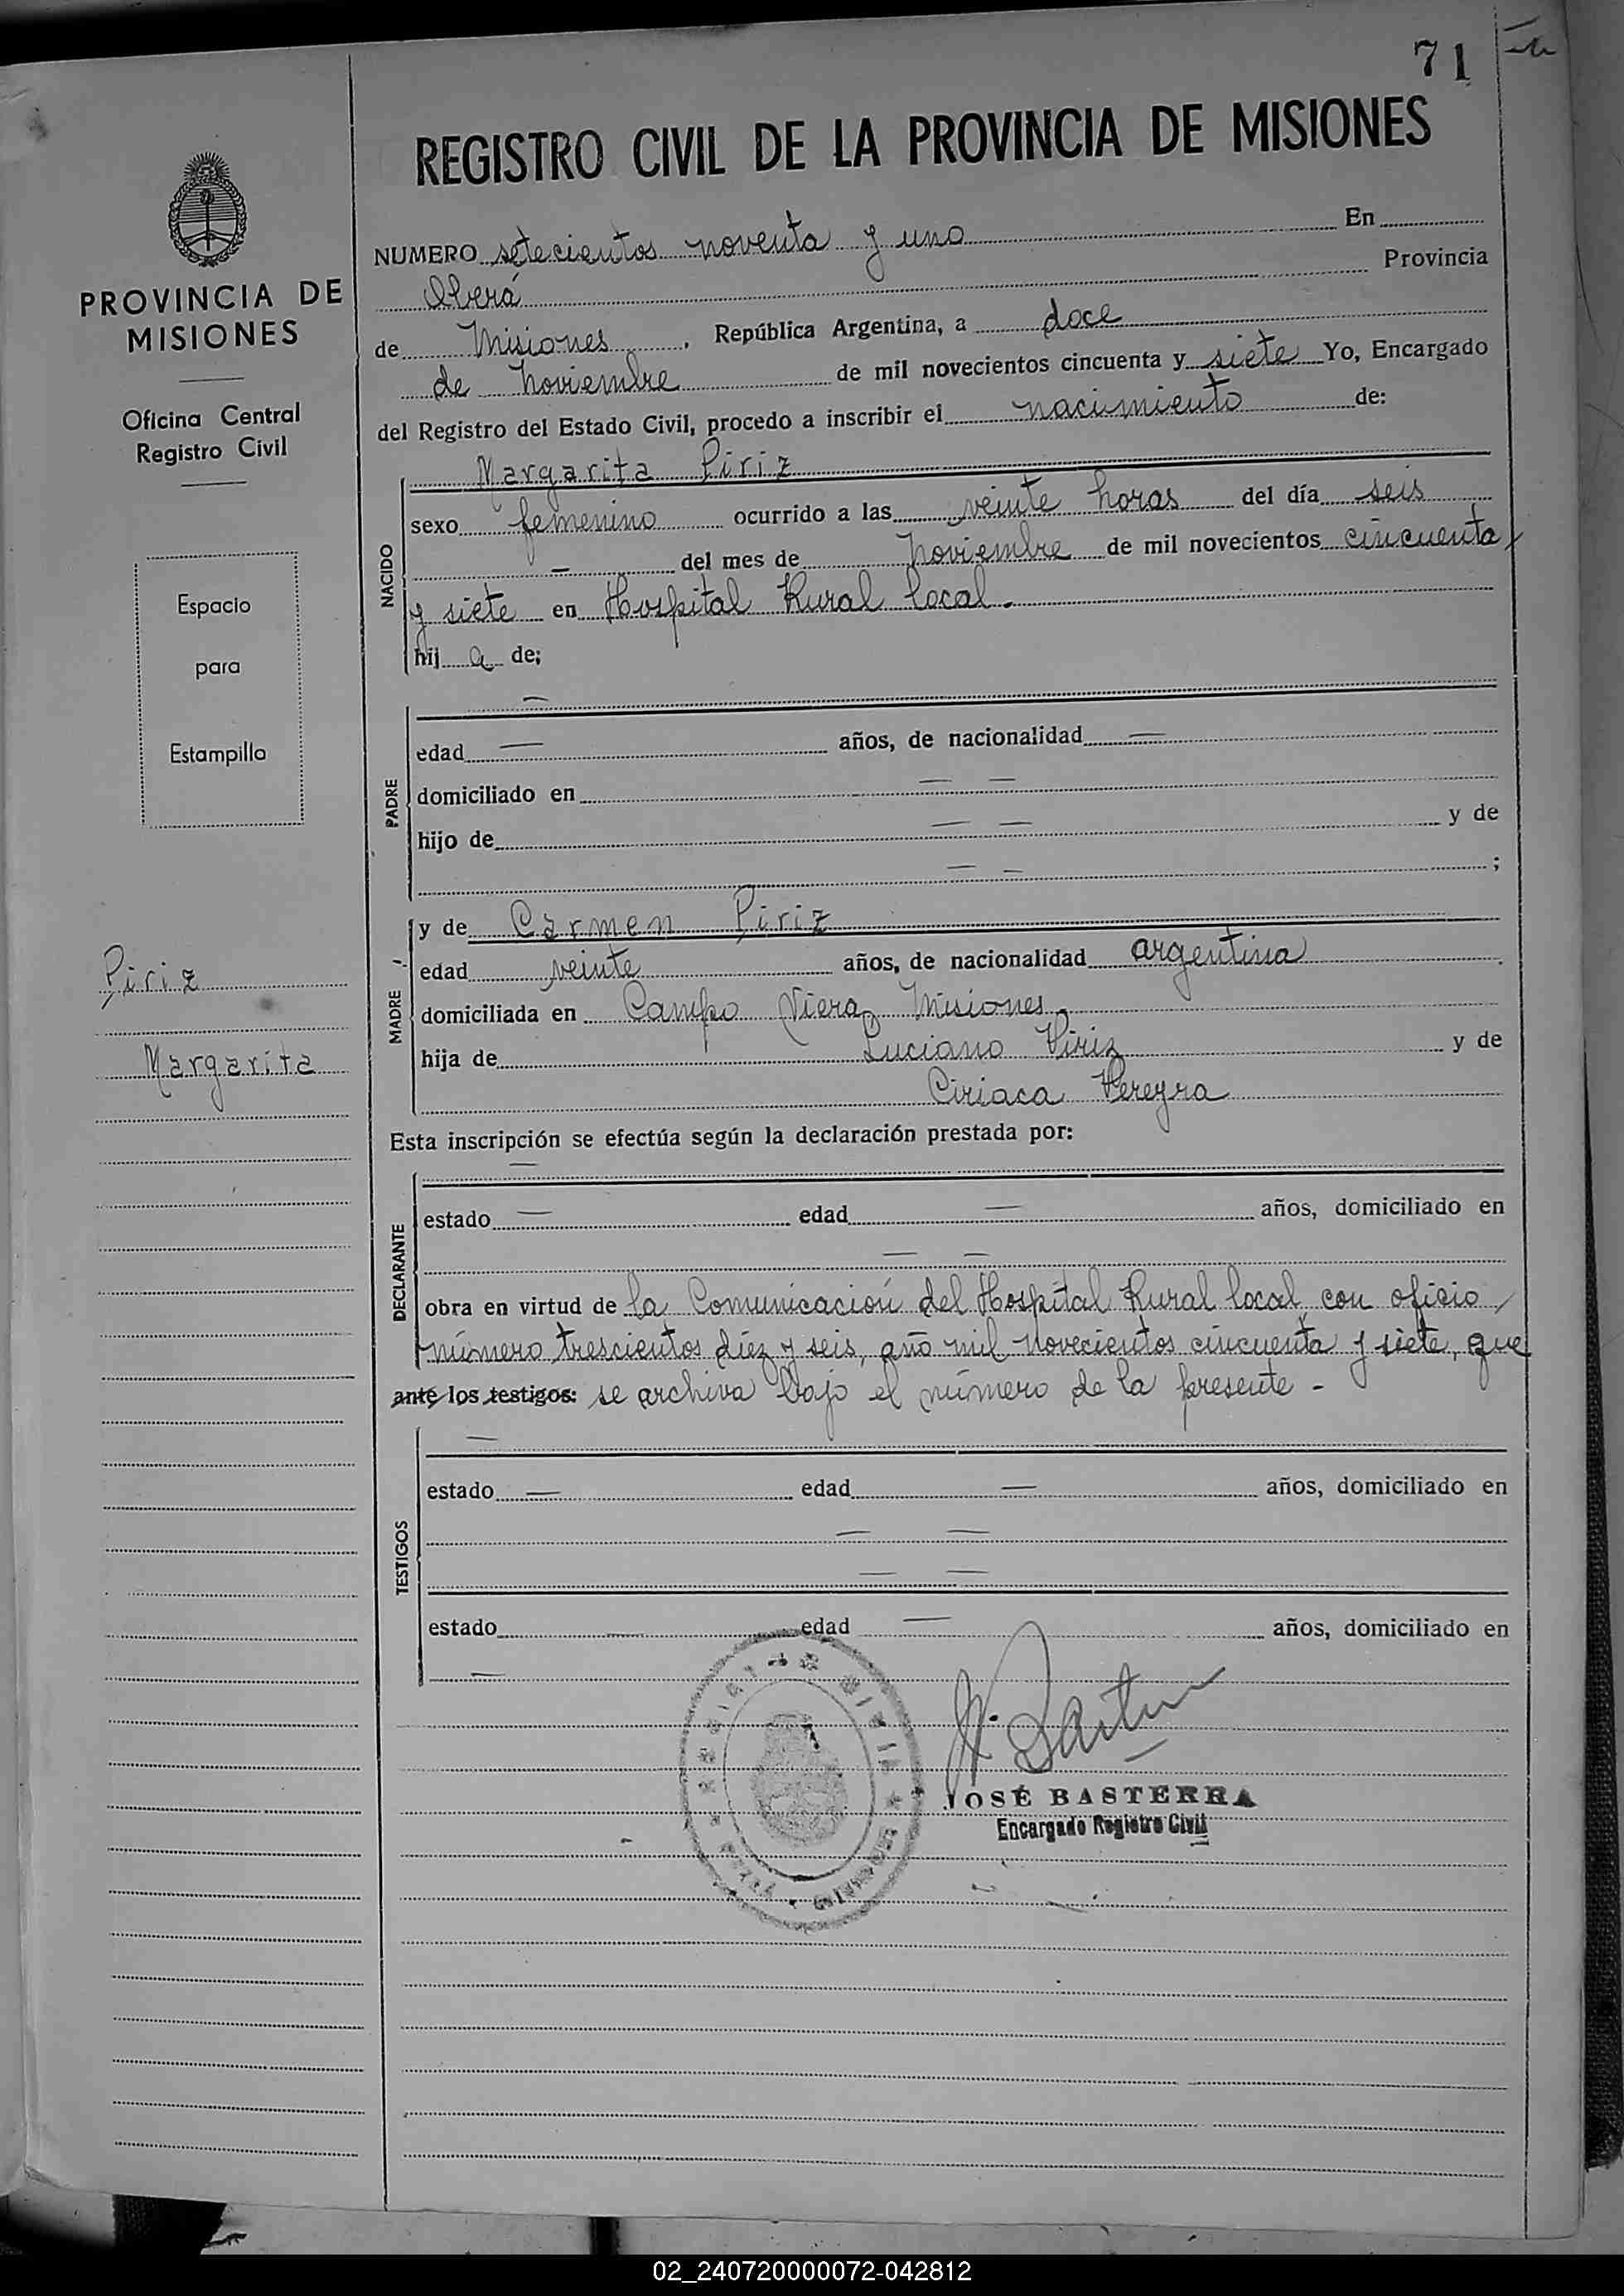 71
REGISTRO CIVIL DE LA PROVINCIA DE MISIONES
PROVINCIA DE
MISIONES
Oficina Central
Registro Civil
Espacio
para
Estampilla
Piriz
Margarita
NUMERO setecientos noventa y uno En
Oberá Provincia
de Misiones, República Argentina, a doce
de Noviembre de mil novecientos cincuenta y siete Yo, Encargado
del Registro del Estado Civil, procedo a inscribir el nacimiento de:
Margarita Piriz
NACIDO
sexo femenino ocurrido a las veinte horas del día seis
— del mes de Noviembre de mil novecientos cincuenta
y siete en Hospital Rural local.
hij a de;
—
PADRE
edad — años, de nacionalidad —
domiciliado en — —
hijo de — — y de
— — ;
MADRE
y de Carmen Piriz
edad veinte años, de nacionalidad argentina
domiciliada en Campo Viera, Misiones
hija de Luciano Piriz y de
Ciriaca Pereyra
Esta inscripción se efectúa según la declaración prestada por:
—
DECLARANTE
estado — edad — años, domiciliado en
— —
obra en virtud de la Comunicación del Hospital Rural local, con oficio
número trescientos diez y seis, año mil novecientos cincuenta y siete, que
ante los testigos: se archiva bajo el número de la presente -
—
TESTIGOS
estado — edad — años, domiciliado en
— —
— —
estado — edad — años, domiciliado en
—
JOSÉ BASTERRA
Encargado Registro Civil
02_240720000072-042812